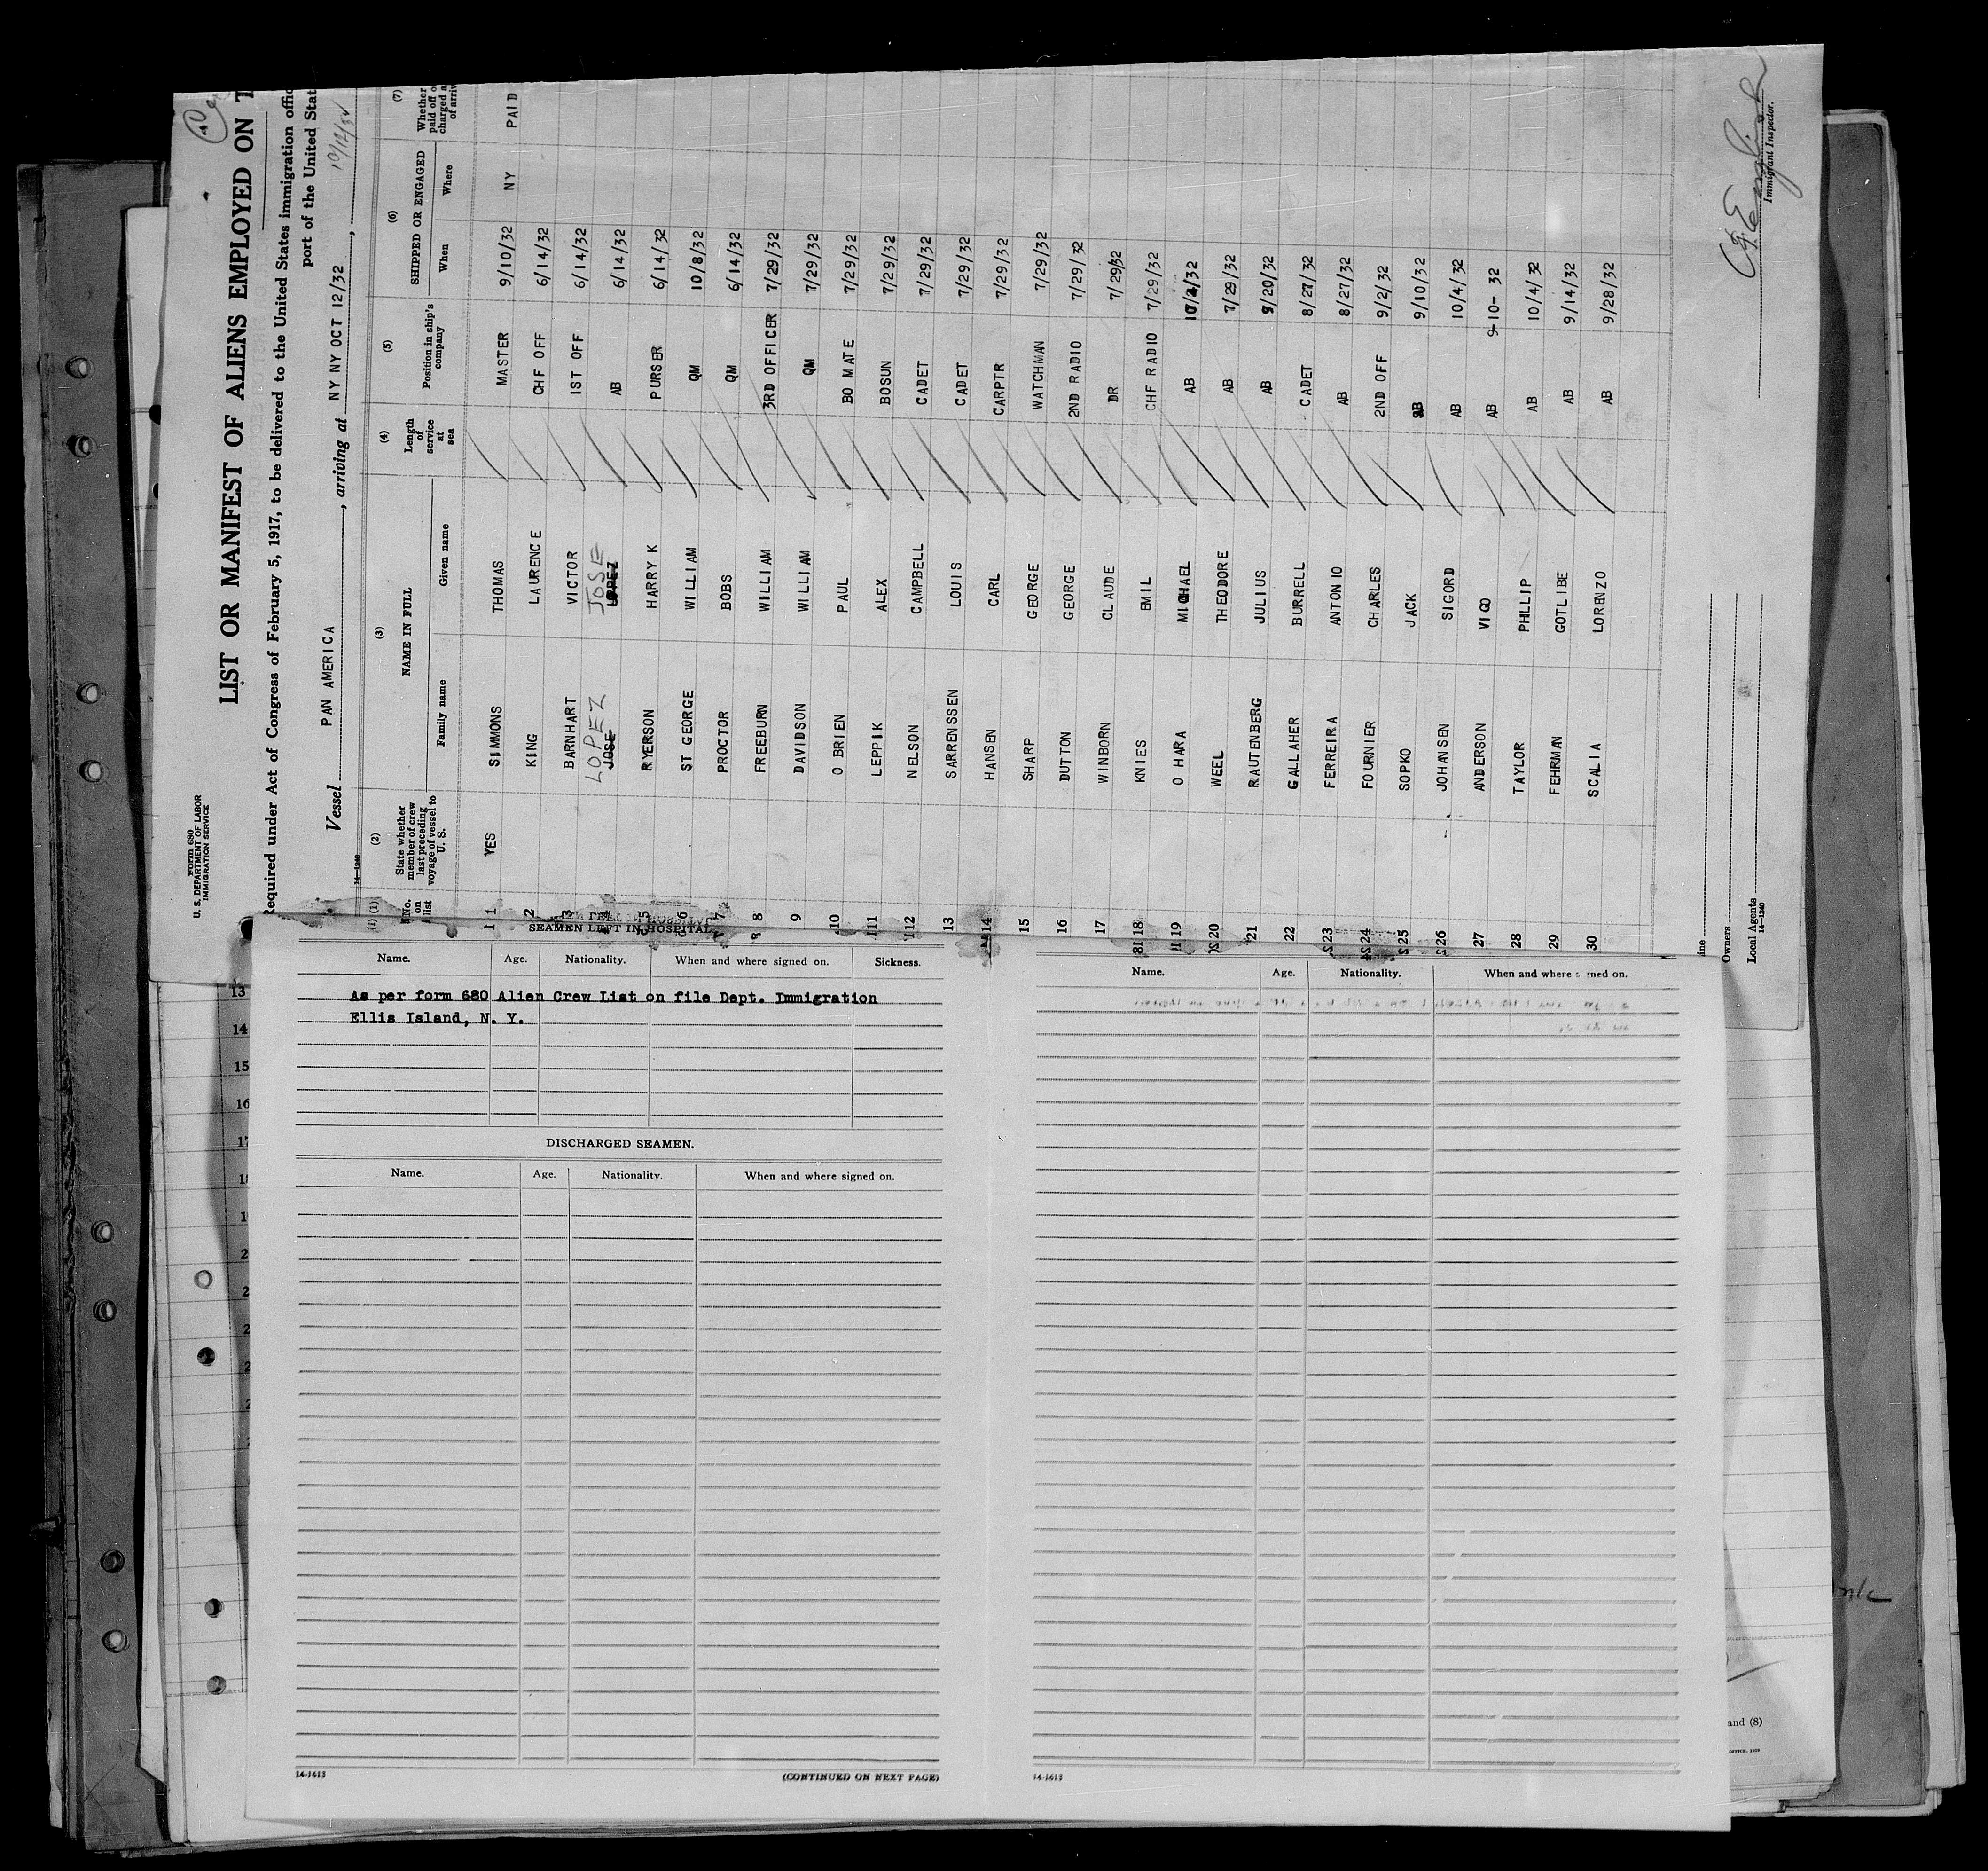 Form 680
U. S. DEPARTMENT OF LABOR
IMMIGRATION SERVICE
LIST OR MANIFEST OF ALIENS EMPLOYED ON
Required under Act of Congress of February 5, 1917, to be delivered to the United States immigration
port of the United
Vessel PAN AMERICA, arriving at NY NY OCT 12/32, 10/12/32
14—1240
(1) (2) (3) (4) (5) (6) (7)
No. on list State whether member of crew last preceding voyage of vessel to U. S. NAME IN FULL Length of service at sea Position in ship's company SHIPPED OR ENGAGED Whether paid off
Family name Given name When Where
1 YES SIMMONS THOMAS MASTER 9/10/32 NY PAID
2 KING LAURENCE CHF OFF 6/14/32
3 BARNHART VICTOR 1ST OFF 6/14/32
LOPEZ JOSE
4 JOSE LOPEZ AB 6/14/32
5 RYERSON HARRY K PURSER 6/14/32
6 ST GEORGE WILLIAM QM 10/8/32
7 PROCTOR BOBS QM 6/14/32
8 FREEBURN WILLIAM 3RD OFFICER 7/29/32
9 DAVIDSON WILLIAM QM 7/29/32
10 O BRIEN PAUL BO MATE 7/29/32
11 LEPPIK ALEX BOSUN 7/29/32
12 NELSON CAMPBELL CADET 7/29/32
13 SARRENSSEN LOUIS CADET 7/29/32
14 HANSEN CARL CARPTR 7/29/32
15 SHARP GEORGE WATCHMAN 7/29/32
16 DUTTON GEORGE 2ND RADIO 7/29/32
17 WINBORN CLAUDE DR 7/29/32
18 KNIES EMIL CHF RADIO 7/29/32
19 O HARA MICHAEL AB
20 WEEL THEODORE AB 7/29/32
21 RAUTENBERG JULIUS AB 9/20/32
22 GALLAHER BURRELL CADET 8/27/32
23 FERREIRA ANTONIO AB 8/27/32
24 FOURNIER CHARLES 2ND OFF 9/2/32
25 SOPKO JACK AB 9/10/32
26 JOHANSEN SIGORD AB 10/4/32
27 ANDERSON VIGO AB 9-10-32
28 TAYLOR PHLLIP AB 10/4/32
29 FEHRMAN GOTLIBE AB 9/14/32
30 SCALIA LORENZO AB 9/28/32
Owners
Local Agents
14—1240
Immigrant Inspector.
SEAMEN LEFT IN HOSPITAL
Name. Age. Nationality. When and where signed on. Sickness.
As per form 680 Alien Crew List on file Dept. Immigration
Ellis Island, N. Y.
DISCHARGED SEAMEN.
Name. Age. Nationality. When and where signed on.
14-1613 (CONTINUED ON NEXT PAGE)
Name. Age. Nationality. When and where signed on.
14-1613
13
14
15
16
and (8)